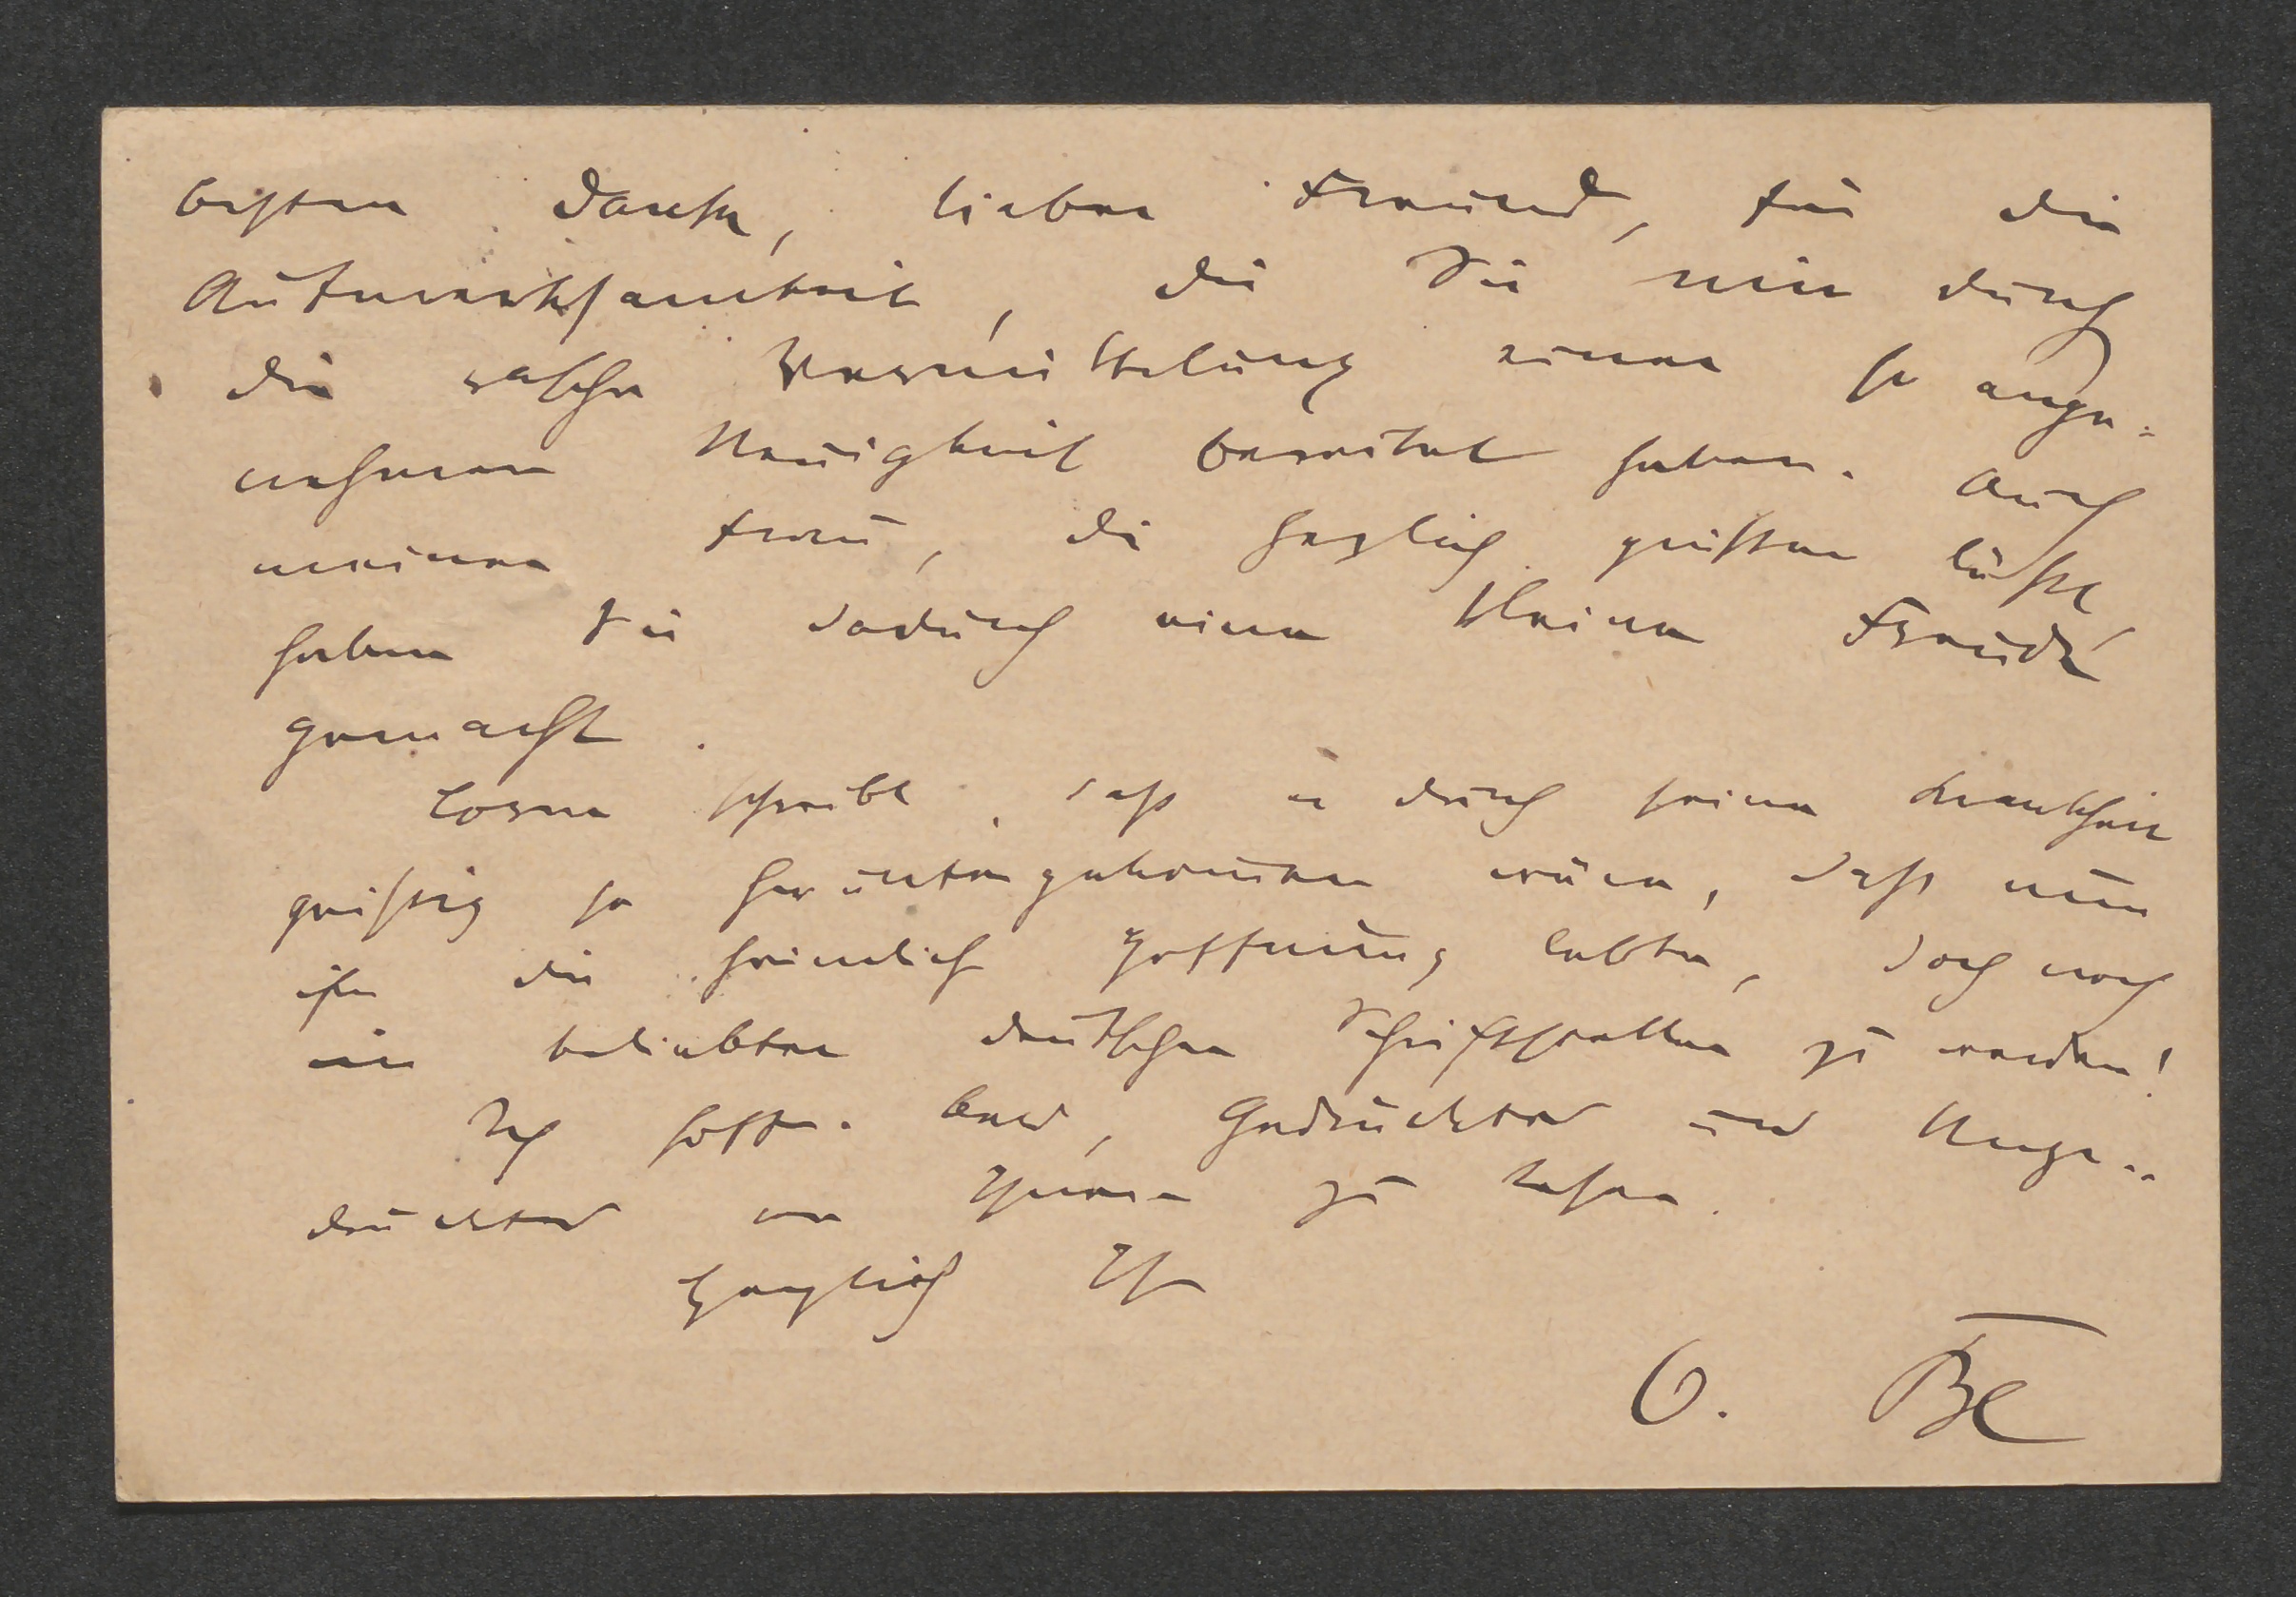 besten Dank, lieber Freund, für die
Aufmerksamkeit, die Sie mir durch
die rasche Vermittelung einer so ange-
nehmen Neuigkeit bereitet haben. Auch
meiner Frau, die herzlich grüssen lässt
haben Sie dadurch eine kleine Freude
gemacht.
schreibt, dass er durch seine Krankheit
geistig so heruntergekommen wäre, dass nun
ihn die heimlich Hoffnung lebte, doch noch
ein beliebter deutscher Schriftsteller zu werden!
Ich hoffe bald, Gedrucktes und Unge-
drucktes von Ihnen zu sehen.
Herzlich Ihr
O. B